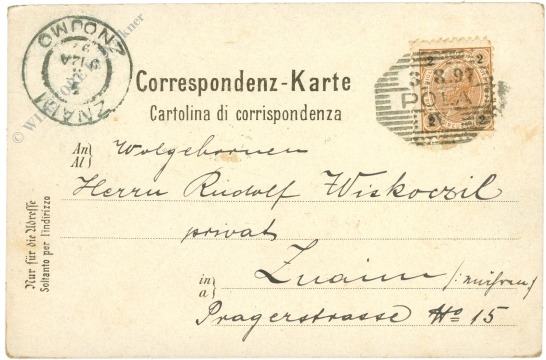 ZNAIM
ZNOJMO
2
2
3 8.97
POLA
2
2
Correspondenz-Karte
Cartolina di corrispondenza
An
Al
Wolgebornen
Herrn Rudolf Wiskoczil
privat
in
a
Znaim (:mähren)
Pragerstrasse No 15
Nur für die Adresse
Soltanto per l'indirizzo